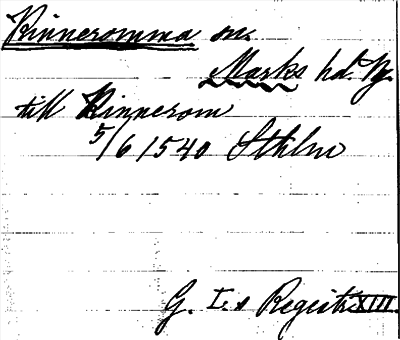 Kinneromma sn.
Marks hd. Vg.
till Kinnerom
5/6 1540 Sthlm
G. I:s Registr. XIII.